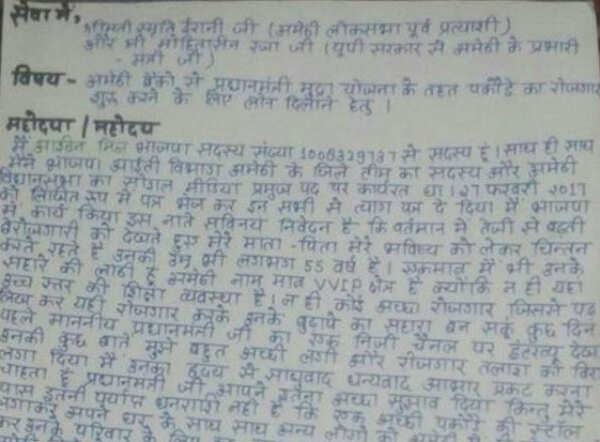 सेवा में,
श्रीमती स्मृति ईरानी जी (अमेठी लोकसभा पूर्व प्रत्याशी)
और श्री मोहसिन रजा जी (यूपी सरकार में अमेठी के प्रभारी
- मंत्री जी)
विषय - अमेठी बैंको से प्रधानमंत्री मुद्रा योजना के तहत पकौडे का रोजगार
शुरू करने के लिए लोन दिलाने हेतु ।
महोदया / महोदय
मैं मिश्र भाजपा सदस्य संख्या 1008329737 से सदस्य हूं । साथ ही साथ
मैंने भाजपा आईटी विभाग अमेठी के जिले टीम का सदस्य और अमेठी
विधानसभा का सोशल मीडिया प्रमुख पद पर कार्यरत था । 27 फरवरी 2017
को लिखित रूप में पत्र भेज कर इन सभी से त्याग पत्र दे दिया मैं भाजपा
में कार्य किया इस नाते सविनय निवेदन है कि वर्तमान में तेजी से बढ़ती
बेरोजगारी को देखते हुए मेरे माता - पिता मेरे भविष्य को लेकर चिन्तन
करते रहते है उनकी उम्र भी लगभग 55 वर्ष है । एकमात्र मैं भी उनके
सहारे की लाठी हूं अमेठी नाम मात्र VVIP क्षेत्र है क्योंकि न ही यहां
उच्च स्तर की शिक्षा व्यवस्था है । न ही कोई अच्छा रोजगार जिससे पढ़
लिख कर यही रोजगार करके इनके बुढापे का सहारा बन सकूं कुछ दिन
पहले माननीय प्रधानमंत्री जी का एक निजी चैनल पर इंटरव्यू देखा
उनकी कुछ बातें मुझे बहुत अच्छी लगी और रोजगार तलाश को विराम
लगा दिया मैं उनका हृदय से साधुवाद धन्यवाद आभार प्रकट करना
चाहता हूं प्रधानमंत्री जी आपने इतना अच्छा सुझाव दिया किन्तु मेरे
पास इतनी पर्याप्त धनराशी नही है कि एक अच्छी पकौरे की स्टॉल
लगाकर अपने घर के साथ साथ अन्य लोगो को
कर उनके परिवार के लिए